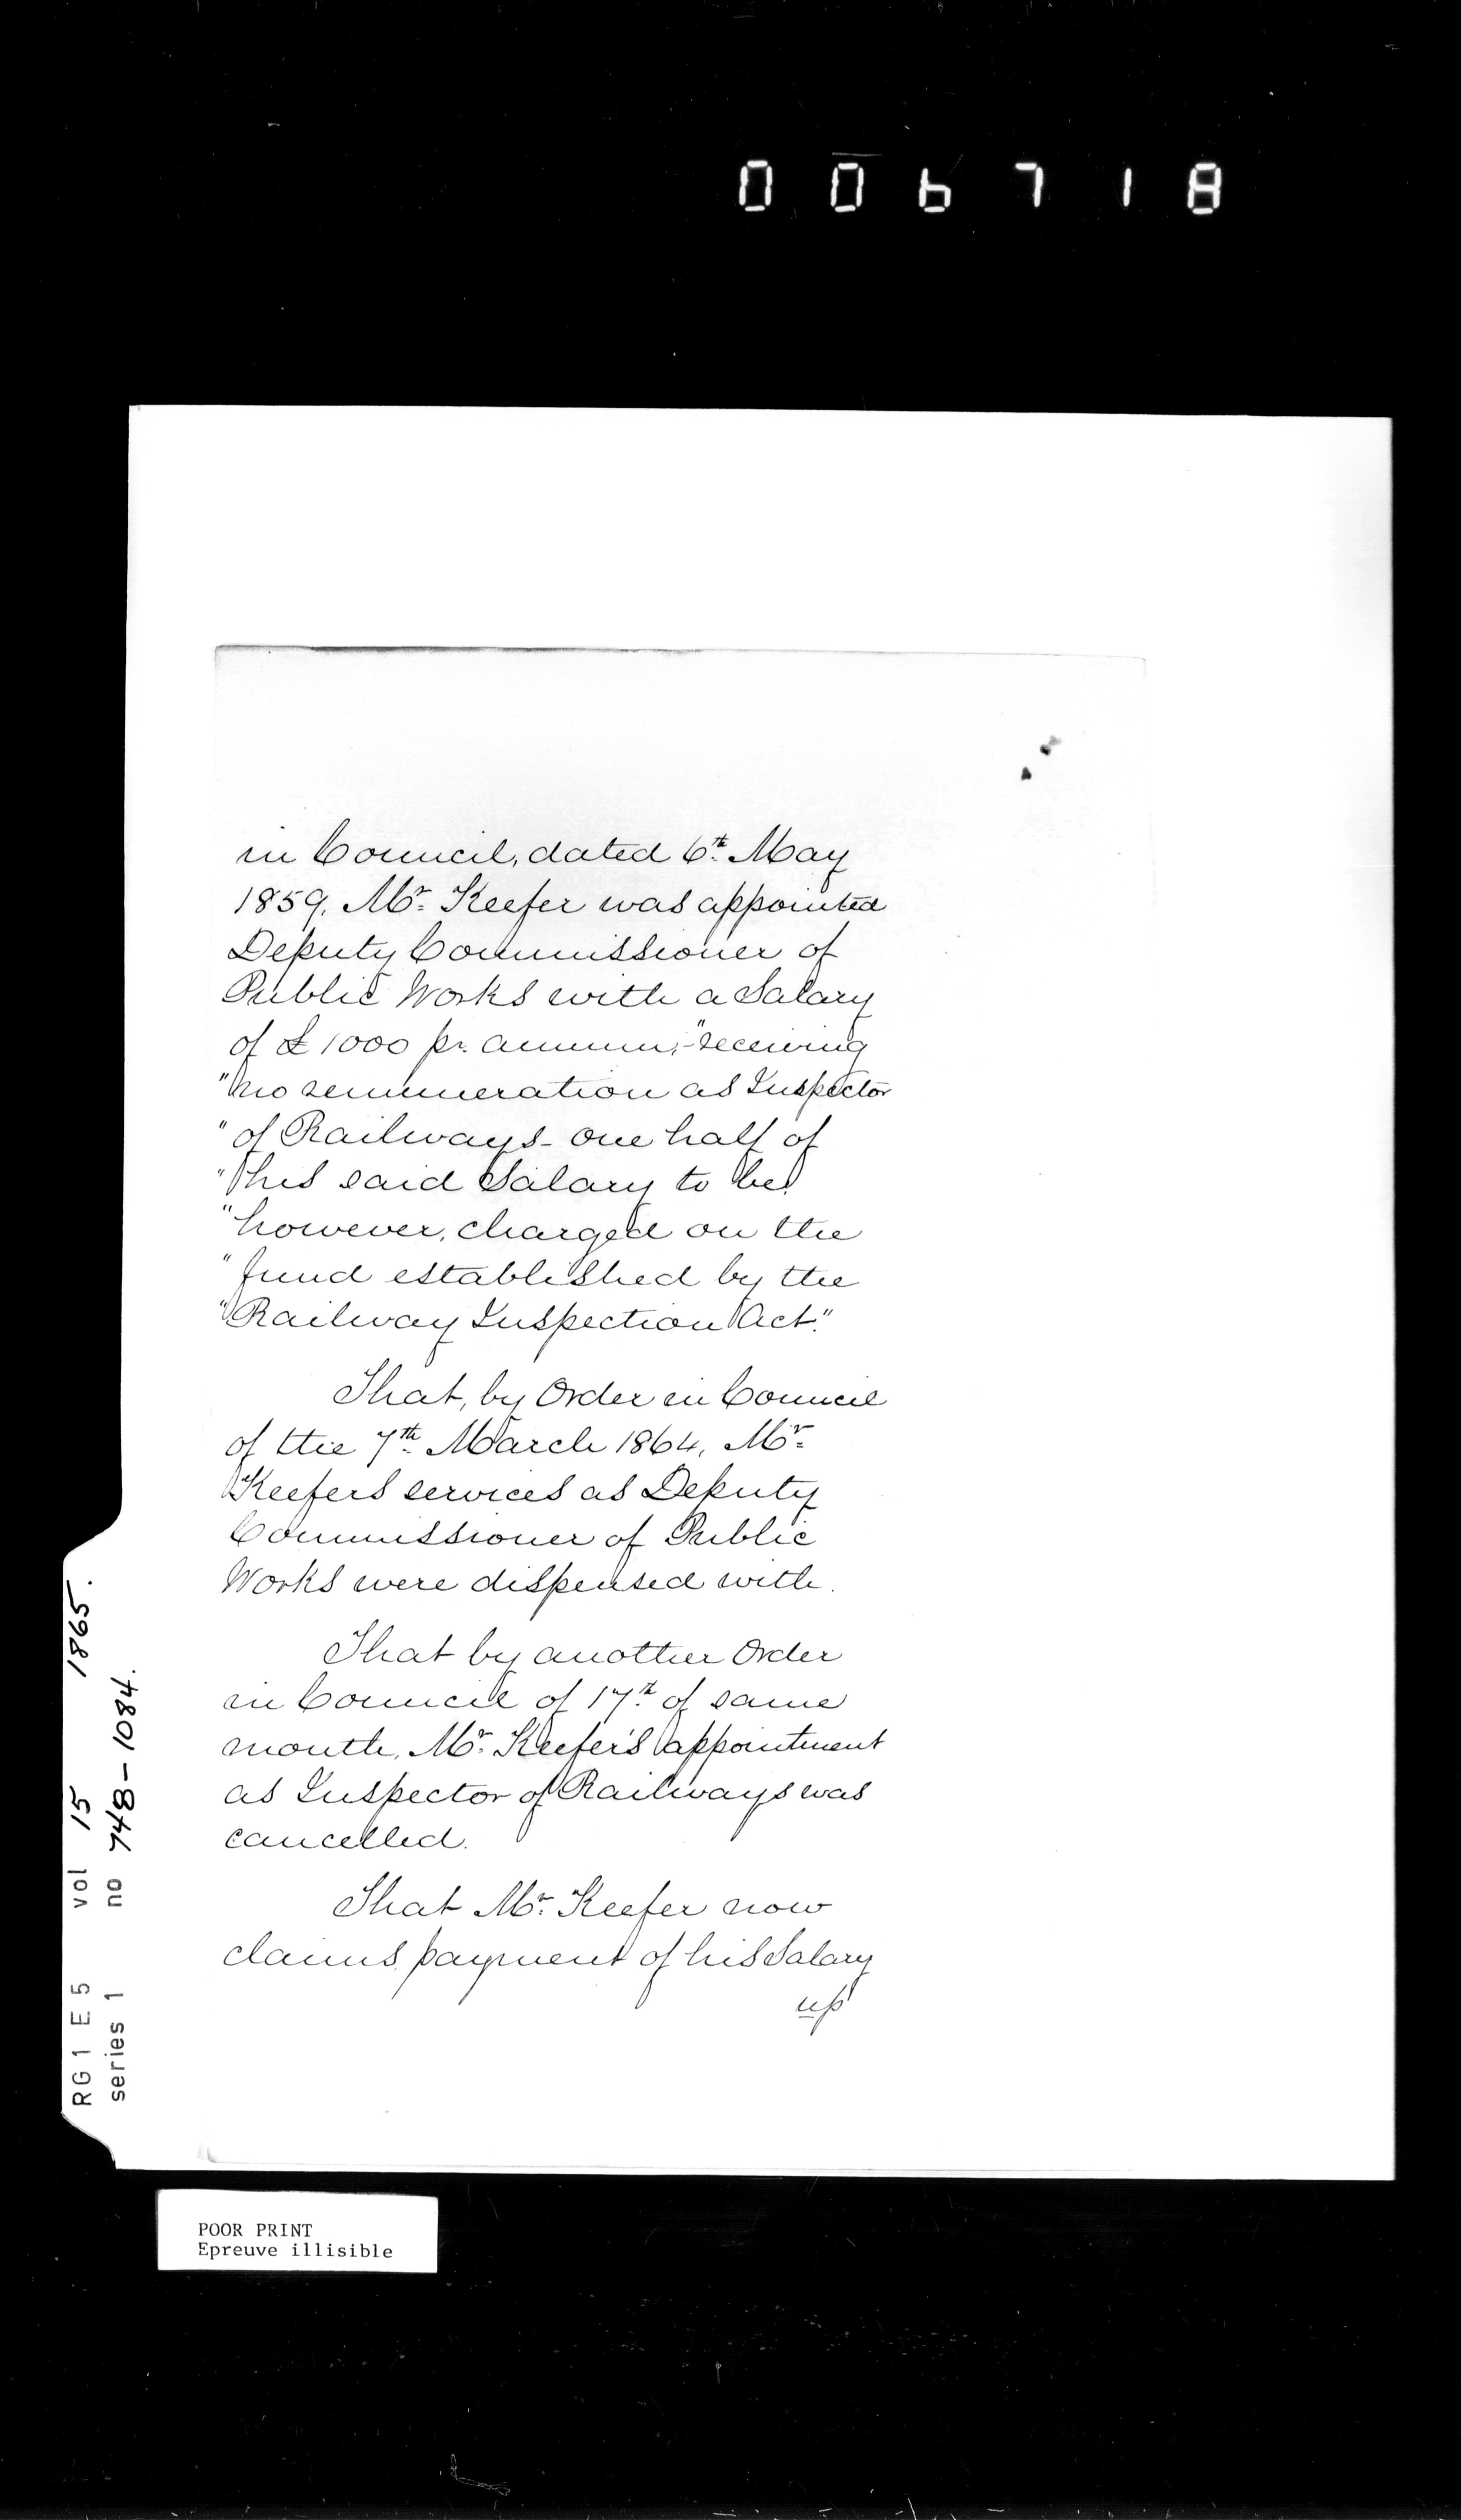 006718
in Council, dated 6th May
1859, Mr. Keefer was appointed
Deputy Commissioner of
Public Works with a Salary
of £1000 pr. annum,-"receiving
"no remuneration as Inspector
"of Railways - one half of
"this said Salary to be,
"however, charged on the
"fund established by the
"Railway Inspection Act."
That, by Order in Council
of the 7th March 1864, Mr.
Keefers services as Deputy
Commissioner of Public
Works were dispensed with.
That by another Order
in Council of 17th of same
month, Mr. Keefer's appointment
as Inspector of Railways was
cancelled.
That Mr. Keefer now
claims payment of his Salary
up
RG 1 E 5 vol 15 1865.
series 1 no 748-1084.
POOR PRINT
Epreuve illisible